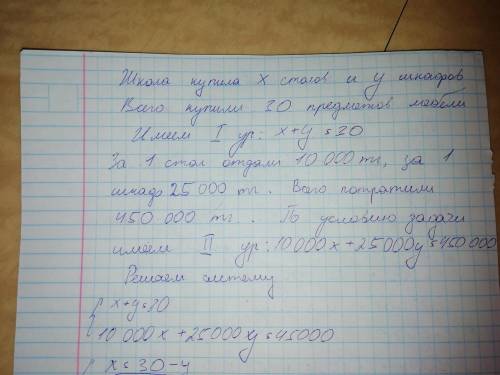 Школа купила x столов и y шкафов
Всего купили 30 предметов мебели
Имеем I ур: x+y=30
За 1 стол отдали 10 000 тг, за 1
шкаф 25 000 тг. Всего потратили
450 000 тг. По условию задачи
имеем II ур: 10 000x+25000y=450 000
Решаем систему
x+y=30
10 000x+25000y=45000
x=30-y